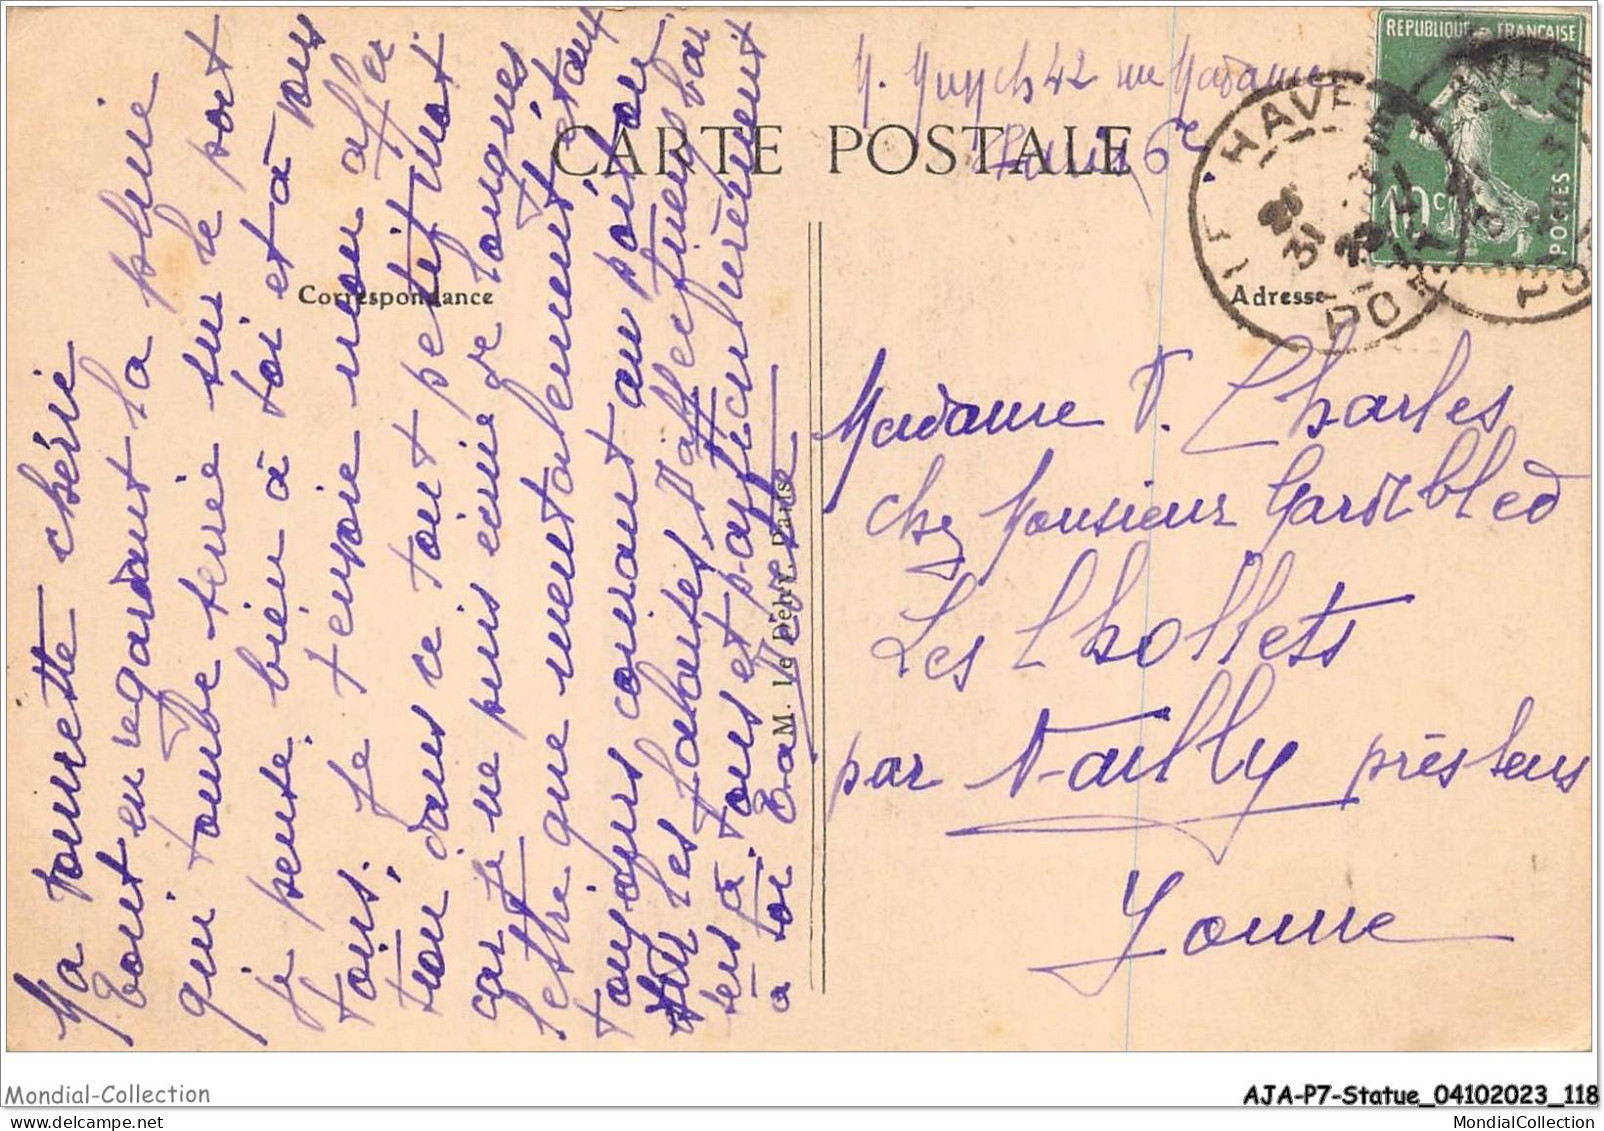 M. 42 rue Madame
Paris 6e
CARTE POSTALE
REPUBLIQUE FRANÇAISE
10c
POSTES
HAVRE
31
Correspondance
Adresse
Ma tourette chérie
Tout en regardant la pluie
qui tombe terrée sur le port
je pense bien à toi et à vous
tous. Je t'envoie mon affec
tion dans ce tout petit mot
car je ne puis écrire de longues
lettre que mentalement étant
toujours courant au point ou
sur les Jahantes. D'affectueux bai
sers à tous et particulièrement
à toi
M. Le Deley, Paris
Madame V. Charles
chez Monsieur Gard Bled
Les Chollets
par Nailly près Sens
Yonne
Mondial-Collection
AJA-P7-Statue_04102023_118
MondialCollection